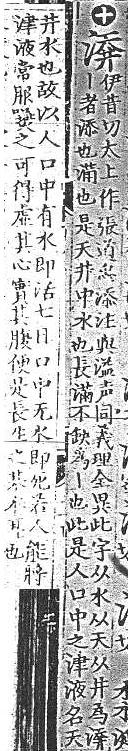 伊昔切太上作張道添注與溢声同義理全異此字从水从天从井為
丨者添也滿也是天井中水也長滿不欠為丨也此是人口中之津液名天
井水也故以人口中有水即活七日口中无水即死若人能將
津液常服嚥之可得虛其心實其腹便是長生之基也